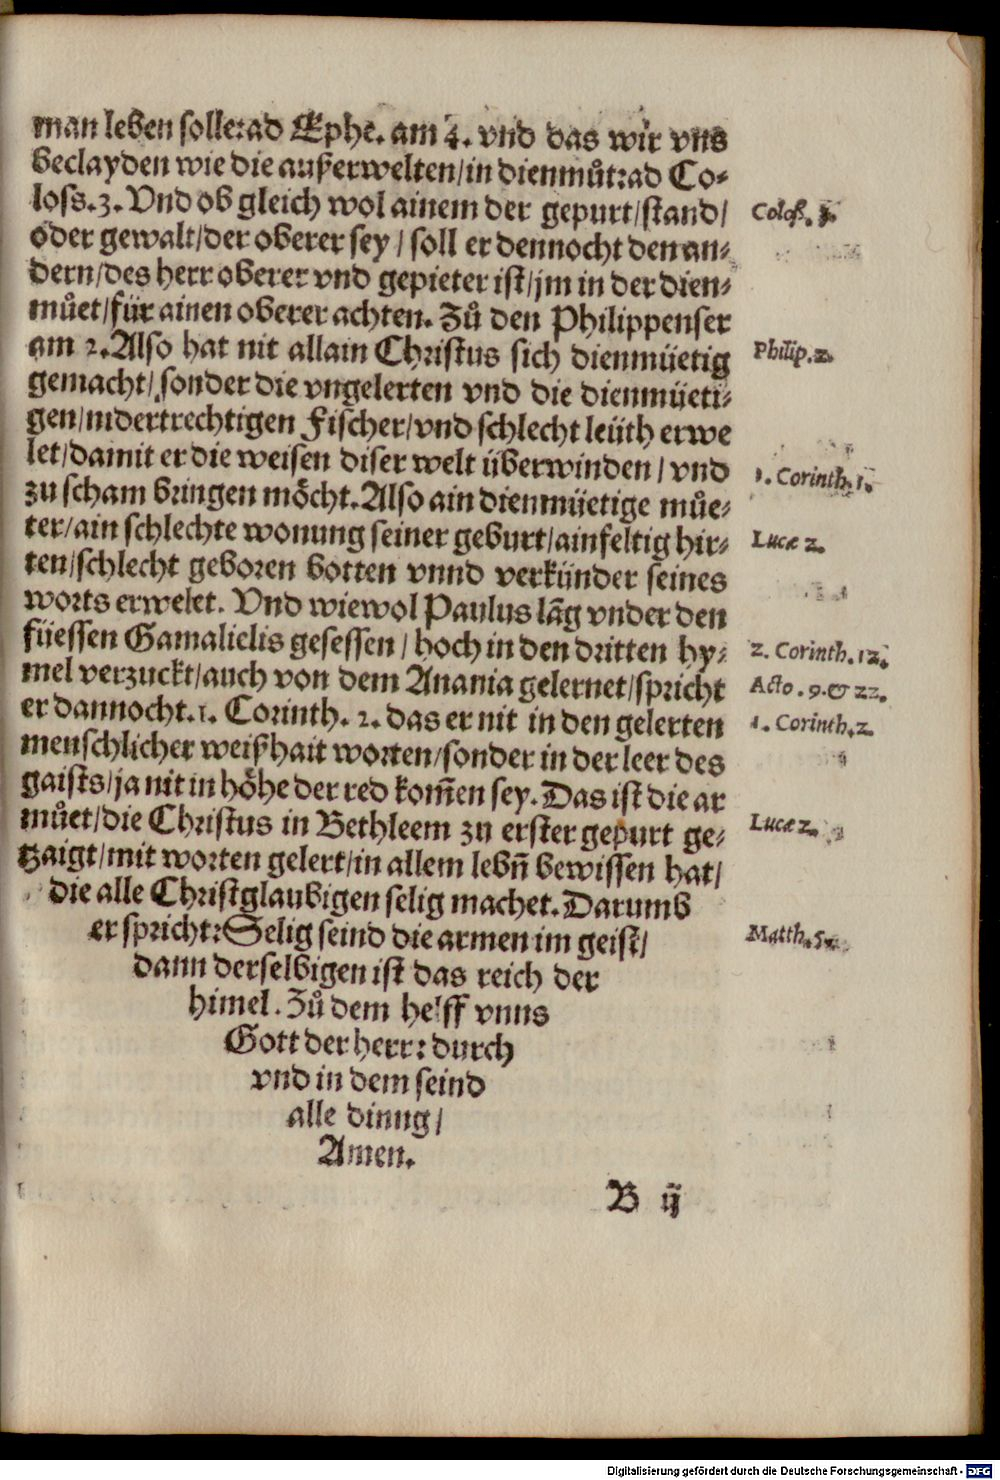 man leben solle: ad Ephe. am 4. vnd das wir vns
beclayden wie die außerwelten/ in dienmůt: ad Co-
loss. 3. Vnd ob gleich wol ainem der gepurt/ stand/
Coloss. 3.
oder gewalt/ der oberer sey/ soll er dennocht den an-
dern/ des herr oberer vnd gepieter ist/ jm in der dien-
můet/ für ainen oberer achten. Zů den Philippenser
am 2. Also hat nit allain Christus sich dienmüetig
Philip. 2.
gemacht/ sonder die vngelerten vnd die dienmüeti-
gen/ nidertrechtigen Fischer/ vnd schlecht leüth erwe
let/ damit er die weisen diser welt überwinden/ vnd
1. Corinth. 1.
zu scham bringen möcht. Also ain dienmüetige můe-
ter/ ain schlechte wonung seiner geburt/ ainfeltig hir-
Lucæ 2.
ten/ schlecht geboren botten vnnd verkünder seines
worts erwelet. Vnd wiewol Paulus lãg vnder den
füessen Gamalielis gesessen/ hoch in den dritten hy-
2. Corinth. 12.
mel verzuckt/ auch von dem Anania gelernet/ spricht
Acto. 9. & 22.
er dannocht. 1. Corinth. 2. das er nit in den gelerten
1. Corinth. 2.
menschlicher weißhait worten/ sonder in der leer des
gaists/ ja nit in höhe der red kom̃en sey. Das ist die ar
můet/ die Christus in Bethleem zu erster gepurt ge-
Lucæ 2.
tzaigt/ mit worten gelert/ in allem lebñ bewissen hat/
die alle Christglaubigen selig machet. Darumb
er spricht: Selig seind die armen im geist/
Matth. 5.
dann derselbigen ist das reich der
himel. Zů dem helff vnns
Gott der herr: durch
vnd in dem seind
alle dinng/
Amen.
B ij
Digitalisierung gefördert durch die Deutsche Forschungsgemeinschaft - DFG